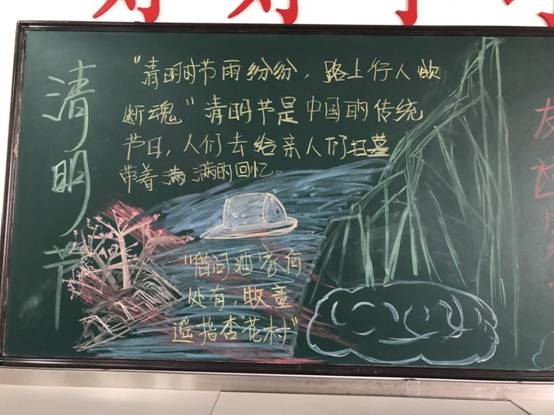 清明节
"清明时节雨纷纷，路上行人欲
断魂"清明节是中国的传统
节日，人们去给亲人们扫墓
带着满满的回忆。
"借问酒家何
处有，牧童
遥指杏花村"